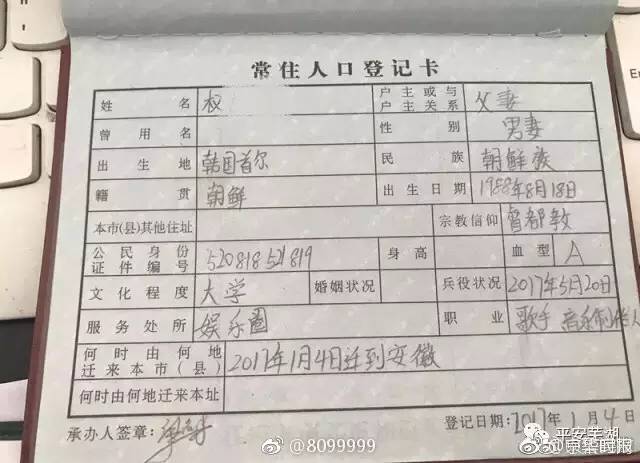 常住人口登记卡
姓名 权 户主或与户主关系 夫妻
曾用名 性别 男妻
出生地 韩国首尔 民族 朝鲜族
籍贯 朝鲜 出生日期 1988年8月18日
本市(县)其他住址 宗教信仰 督都教
公民身份证件编号 520818521819 身高 血型 A
文化程度 大学 婚姻状况 兵役状况 2017年5月20日
服务处所 娱乐圈 职业 歌手 音乐制作人
何时由何地迁来本市(县) 2017年1月4日迁到安徽
何时由何地迁来本址
承办人签章: 登记日期: 2017年1月4日
平安芜湖
@8099999
@京华时报